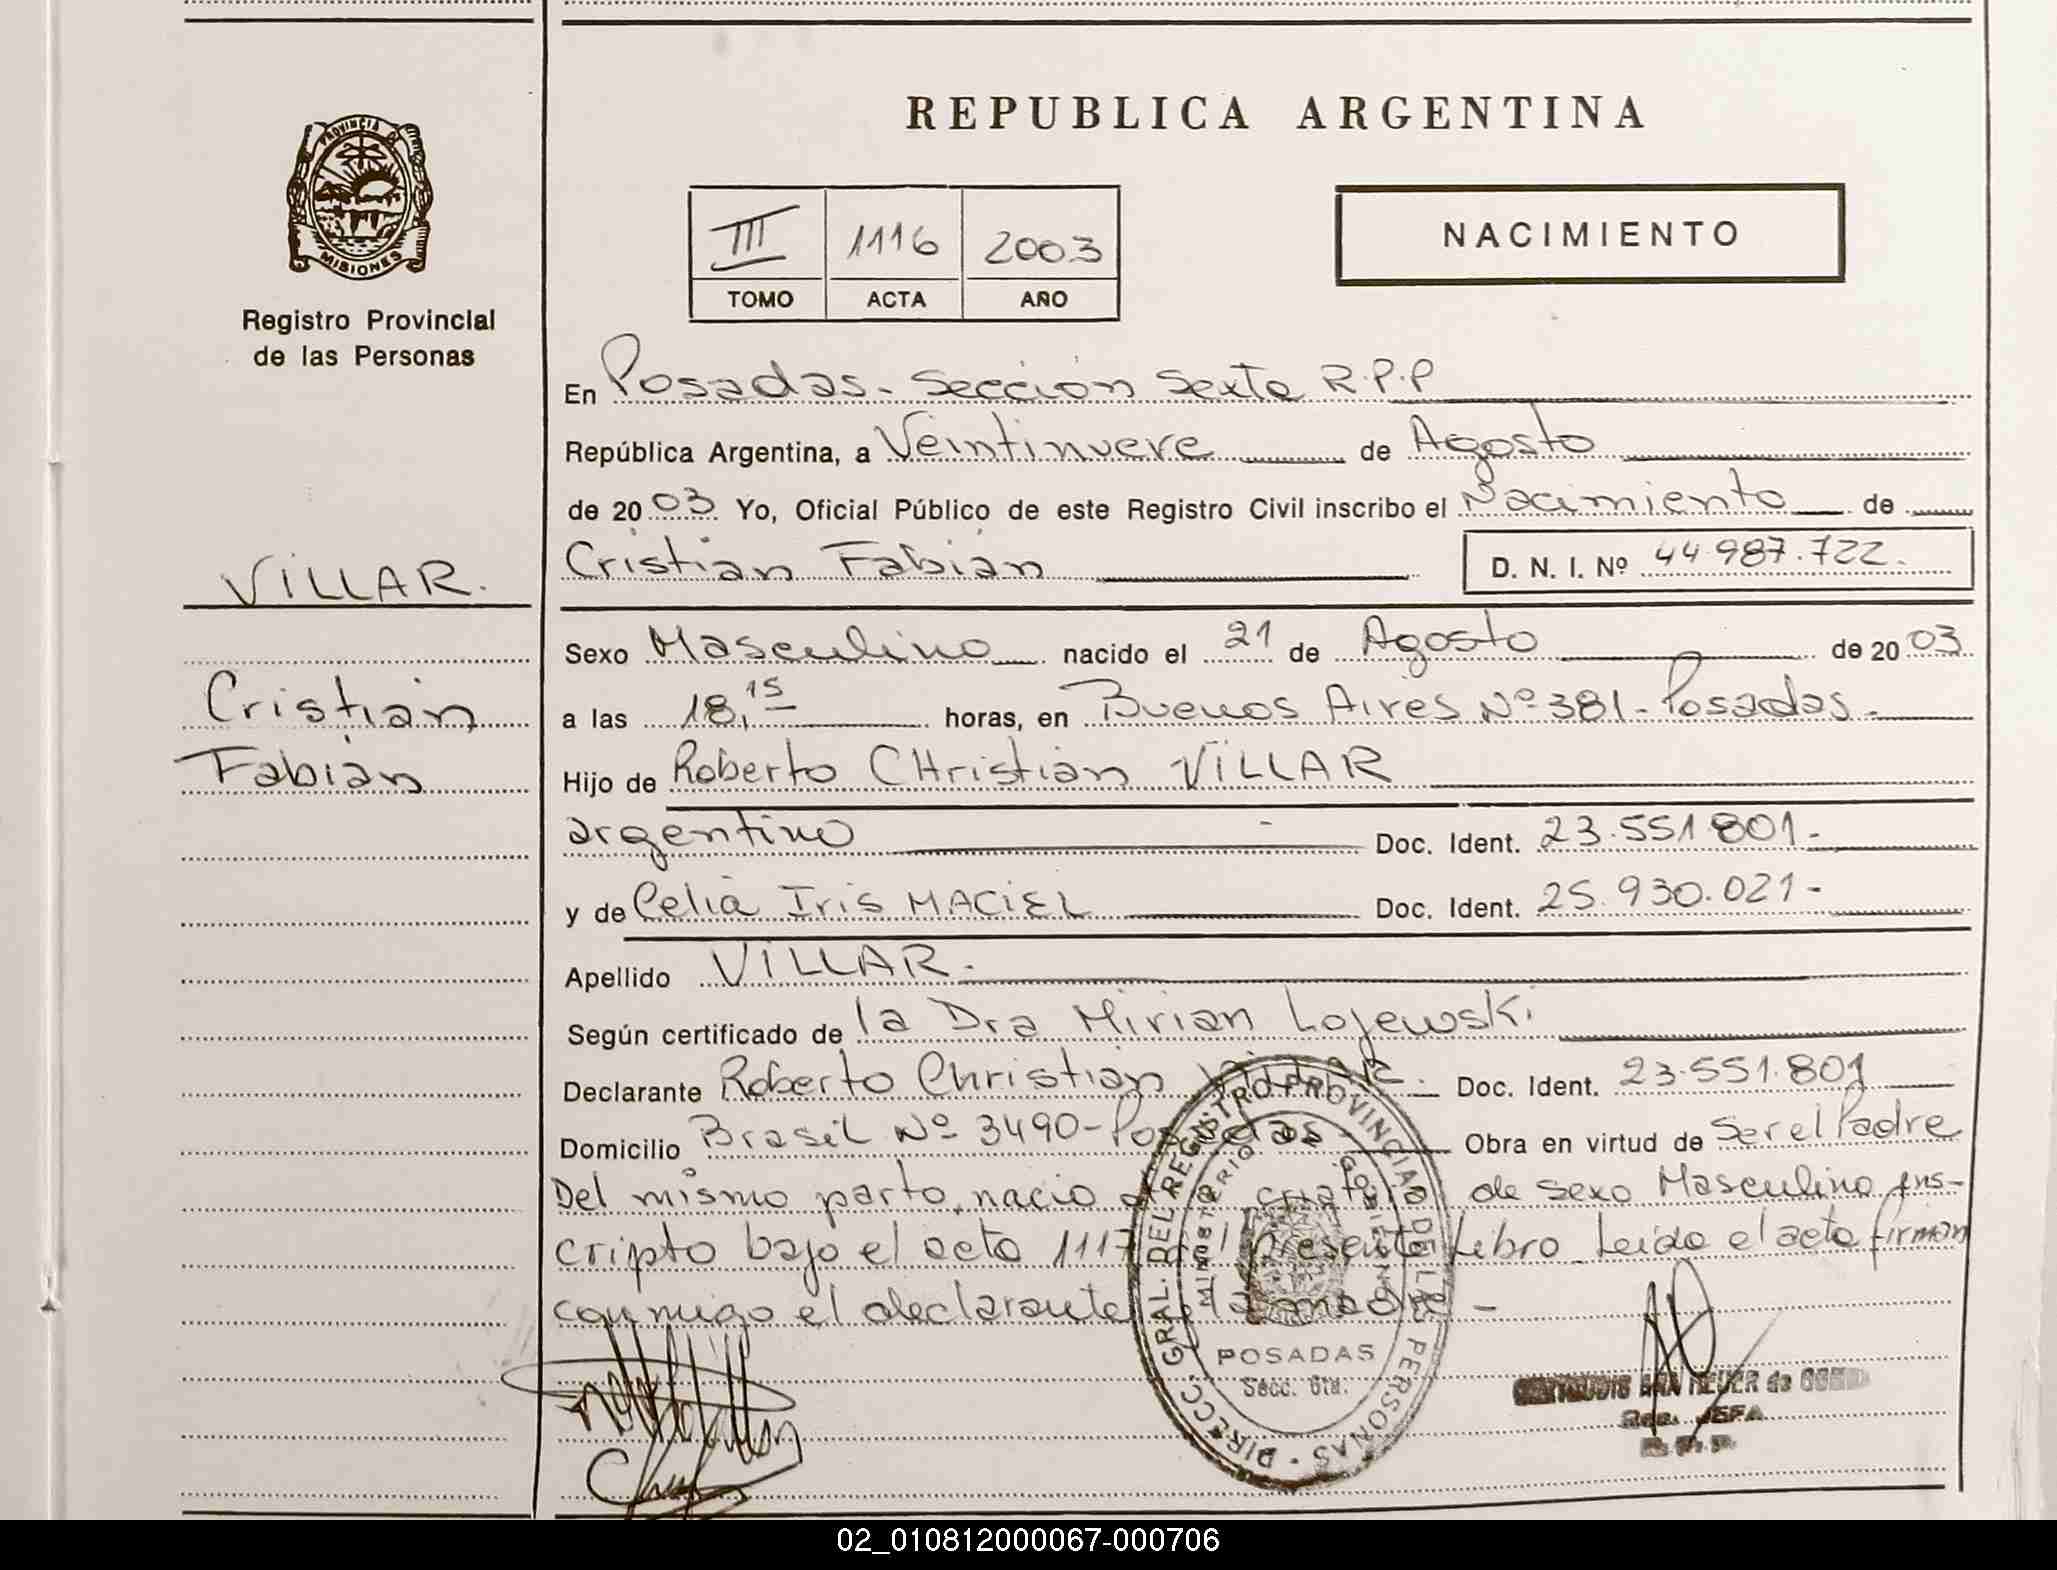 REPUBLICA ARGENTINA
PROVINCIA DE
MISIONES
Registro Provincial
de las Personas
III 1116 2003
TOMO ACTA AÑO
NACIMIENTO
En Posadas - Sección Sexta R.P.P
República Argentina, a Veintinueve de Agosto
de 2003 Yo, Oficial Público de este Registro Civil inscribo el Nacimiento de
Cristian Fabián
D. N. I. Nº 44.987.722.
VILLAR.
Cristian
Fabián
Sexo Masculino nacido el 21 de Agosto de 2003
a las 18,15 horas, en Buenos Aires Nº 381 - Posadas -
Hijo de Roberto CHristian VILLAR
argentino Doc. Ident. 23.551.801 -
y de Celia Iris MACIEL Doc. Ident. 25.930.021 -
Apellido VILLAR -
Según certificado de la Dra Mirian Lojewski
Declarante Roberto Christian Villar. Doc. Ident. 23.551.801
Domicilio Brasil Nº 3490 - Posadas Obra en virtud de Ser el Padre
Del mismo parto, nacio de sexo Masculino ins-
cripto bajo el acta 1117 del presente Libro Leida el acta firman
conmigo el declarante y la madre -
DIRECC. GRAL. DEL REGISTRO PROVINCIAL DE LAS PERSONAS
MINISTERIO DE GOBIERNO
POSADAS
Secc. 6ta.
de
JEFA
R. P. P.
02_010812000067-000706